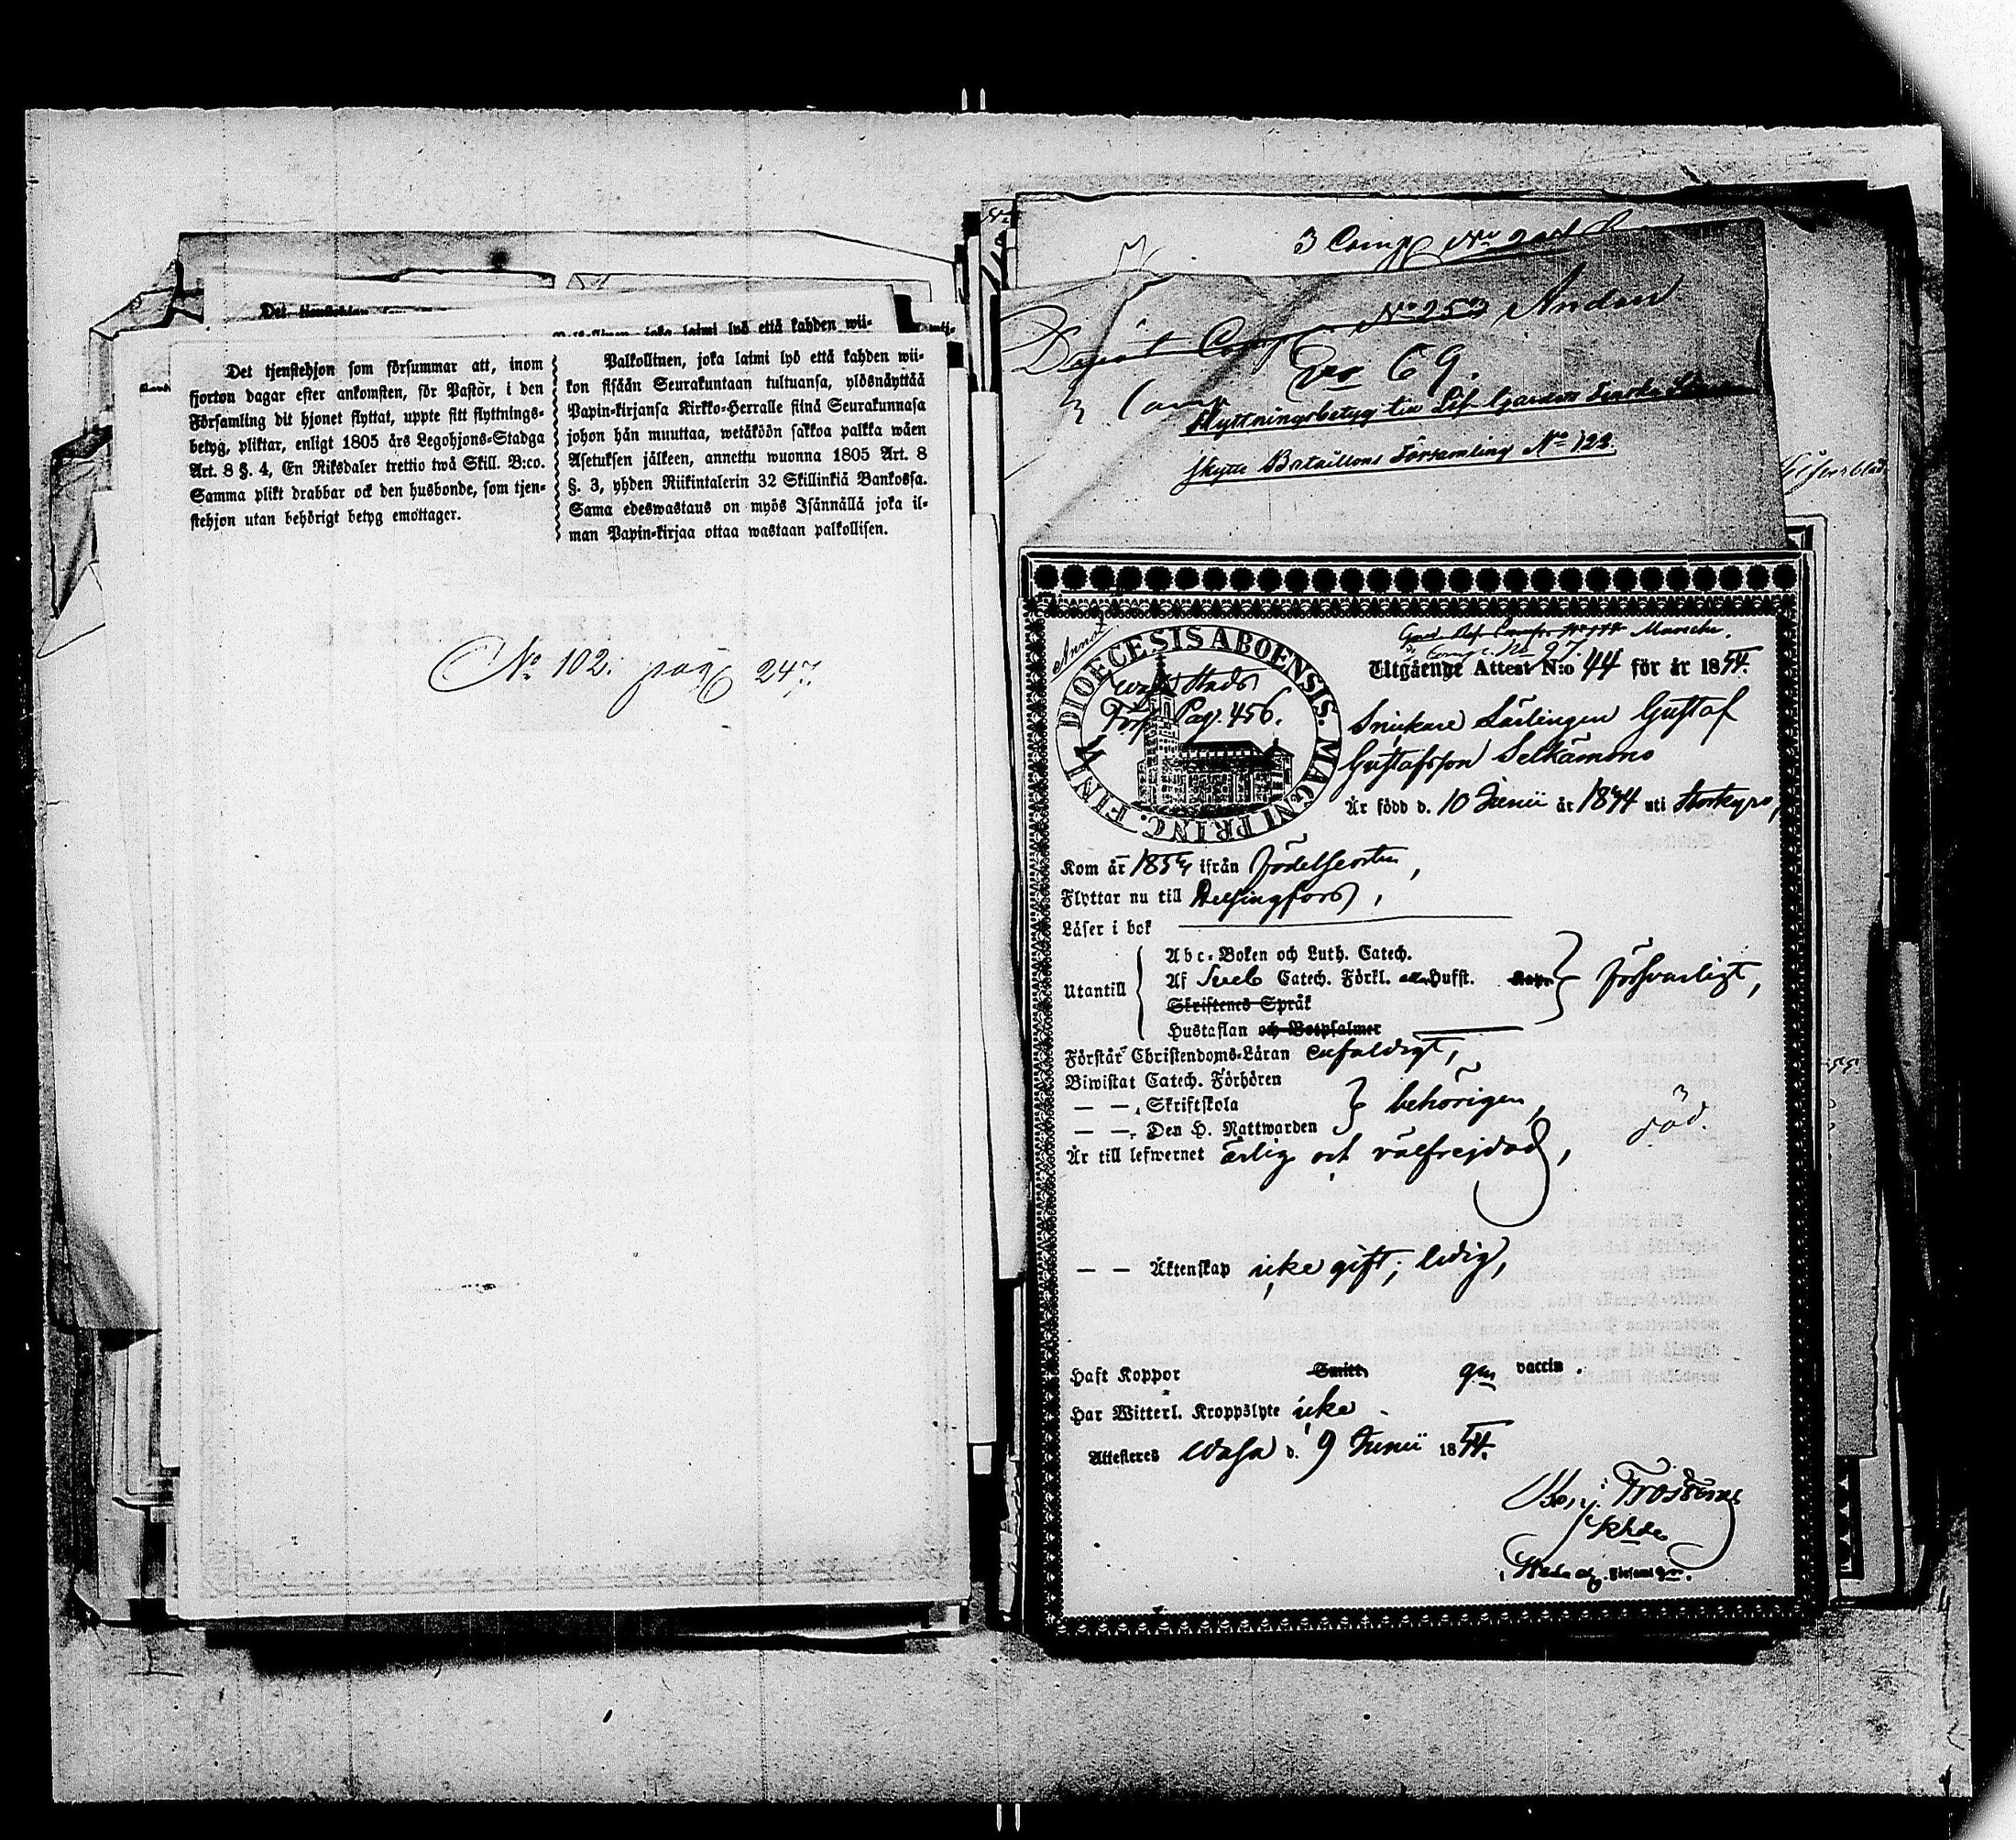 Det tjenstehjon som försummar att, inom
fjorton dagar efter ankomsten, för Pastor, i den
Församling dit hjonet flyttat, uppte sitt flyttnings-
betyg, pliktar, enligt 1805 års Legohjons-Stadga
Art. 8 §. 4, En Riksdaler trettio twå Skill. B:co.
Samma plikt drabbar ock den husbonde, som tjen-
stehjon utan behörigt betyg emottager.
Palkollinen, joka laimi lyö että kahden wii-
Palkollinen, joka laimi lyö että kahden wii-
kon sisään Seurakuntaan tultuansa, ylösnäyttää
Papin-kirjansa Kirkko-Herralle siinä Seurakunnasa
johon hän muuttaa, wetäköön sakkoa palkka wäen
Asetuksen jälkeen, annettu wuonna 1805 Art. 8
§. 3, yhden Riikintalerin 32 Skillinkiä Bankossa.
Sama edeswastaus on myös Isännällä joka il-
man Papin-kirjaa ottaa wastaan palkollisen.
No 102. pag 247.
3 Comp No
Comp No 253 Andan
No 69.
3 Comp
Flyttningsbetyg till Lif-Gardets Finska
Skytte Bataillons Församling No 122.
Annot
No 117 Marsche.
Comp. No 97.
Utgående Attest N:o 44 för år 1854.
DIOECESIS ABOENSIS. MAGNI PRINC. FINL.
Wasa Stads
Förs. Pag. 456.
Snickare Lärlingen Gustaf
Gustafsson Selkämö
Är född d. 10 Junii år 1834 uti Storkyro,
Kom år 1854 ifrån födelseorten,
Flyttar nu till Helsingfors,
Läser i bok
Utantill
Abc-Boken och Luth. Catech.
Af Sveb Catech. Förkl. Hufst.
Skriftenes Språk
Hustaflan och Botpsalmer
försvarligt,
Förstår Christendoms-Läran enfaldigt,
Biwistat Catech. Förhören
— — Skriftskola
— — Den H. Nattwarden
behörigen,
död.
Är till lefwernet ärlig och välfrejdad,
— — Äktenskap icke gift; ledig,
Haft Koppor Smitt. gm vaccin.
Har Witterl. Kroppslyte icke.
Attesteres Wasa d. 9 Junii 1854.
Benj. Frosterus